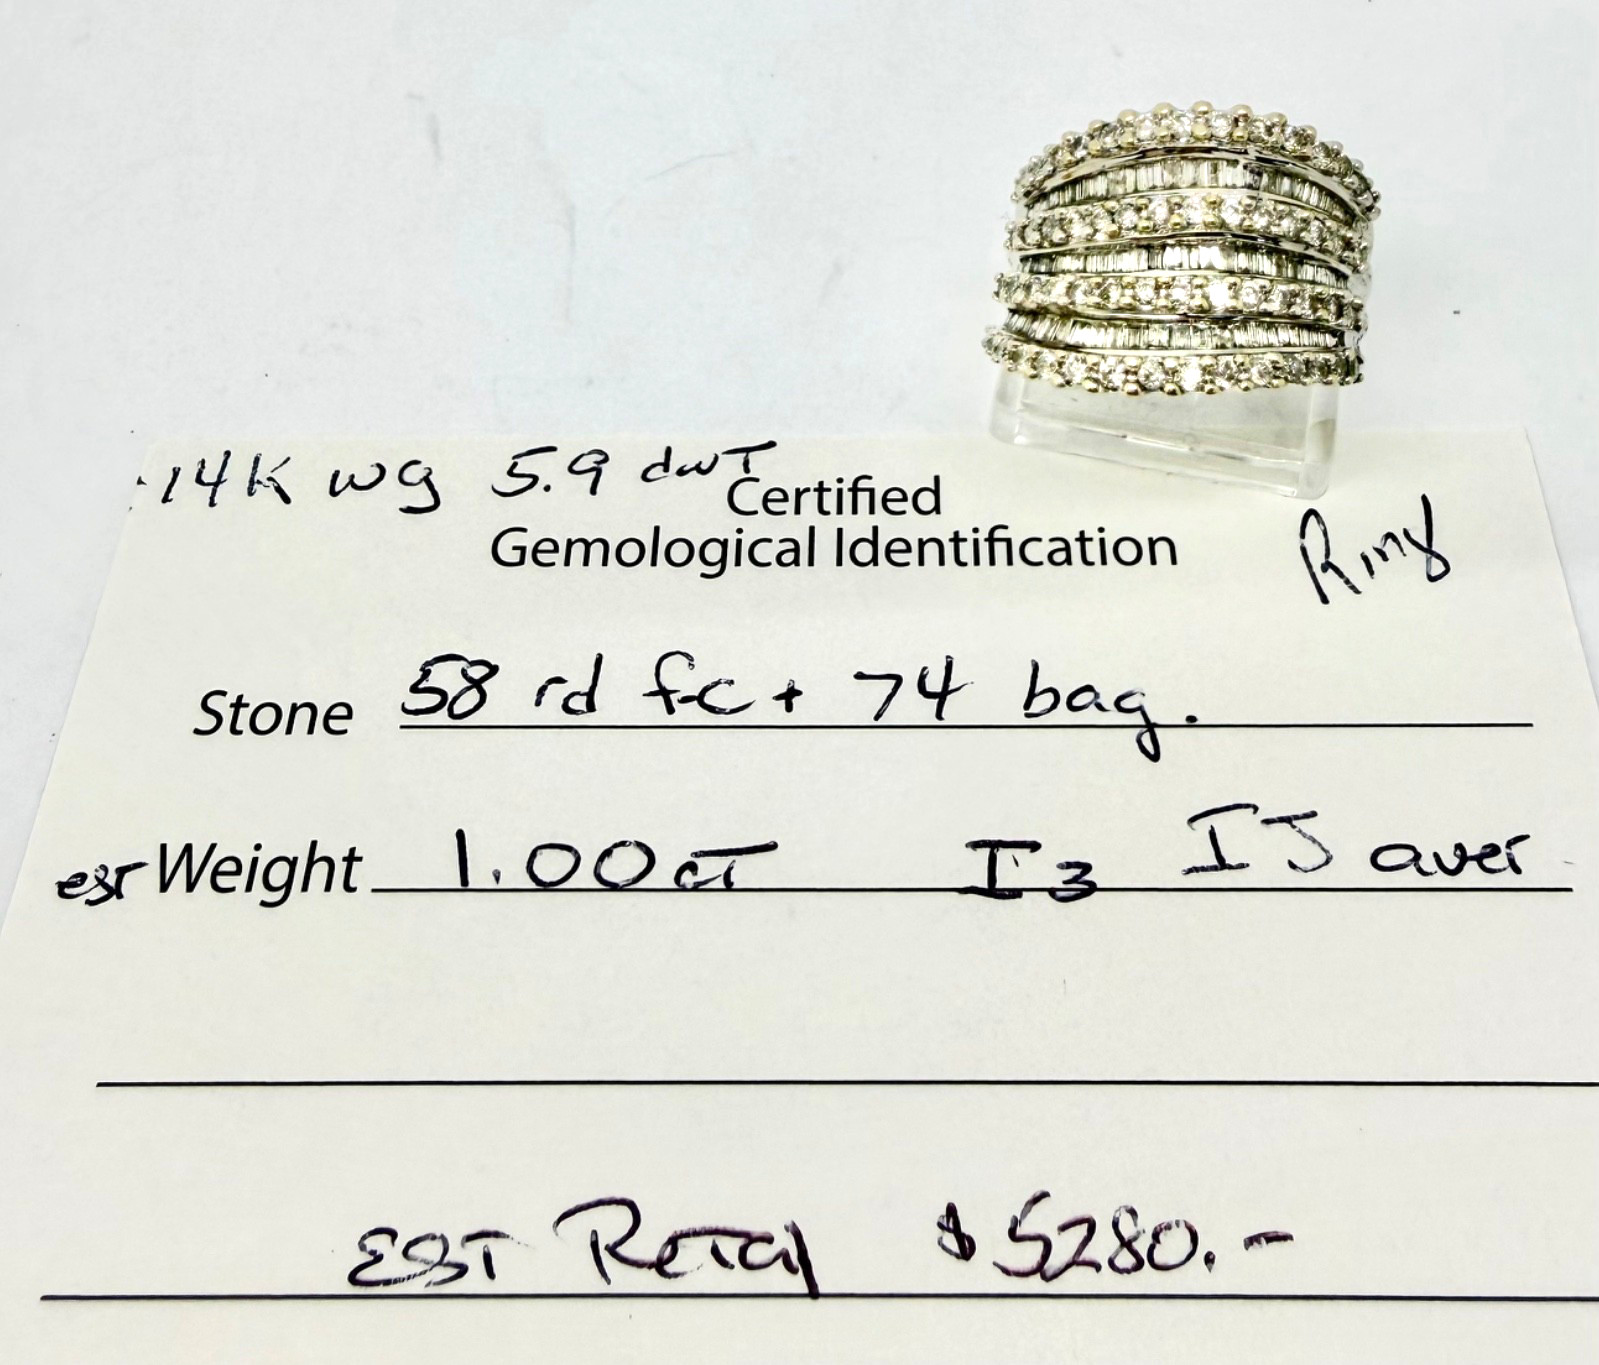 14K wg 5.9 dwT
Certified
Gemological Identification
Ring
Stone 58 rd fc + 74 bag.
est Weight 1.00 cT I3 IJ aver
EST Retail $5280.-